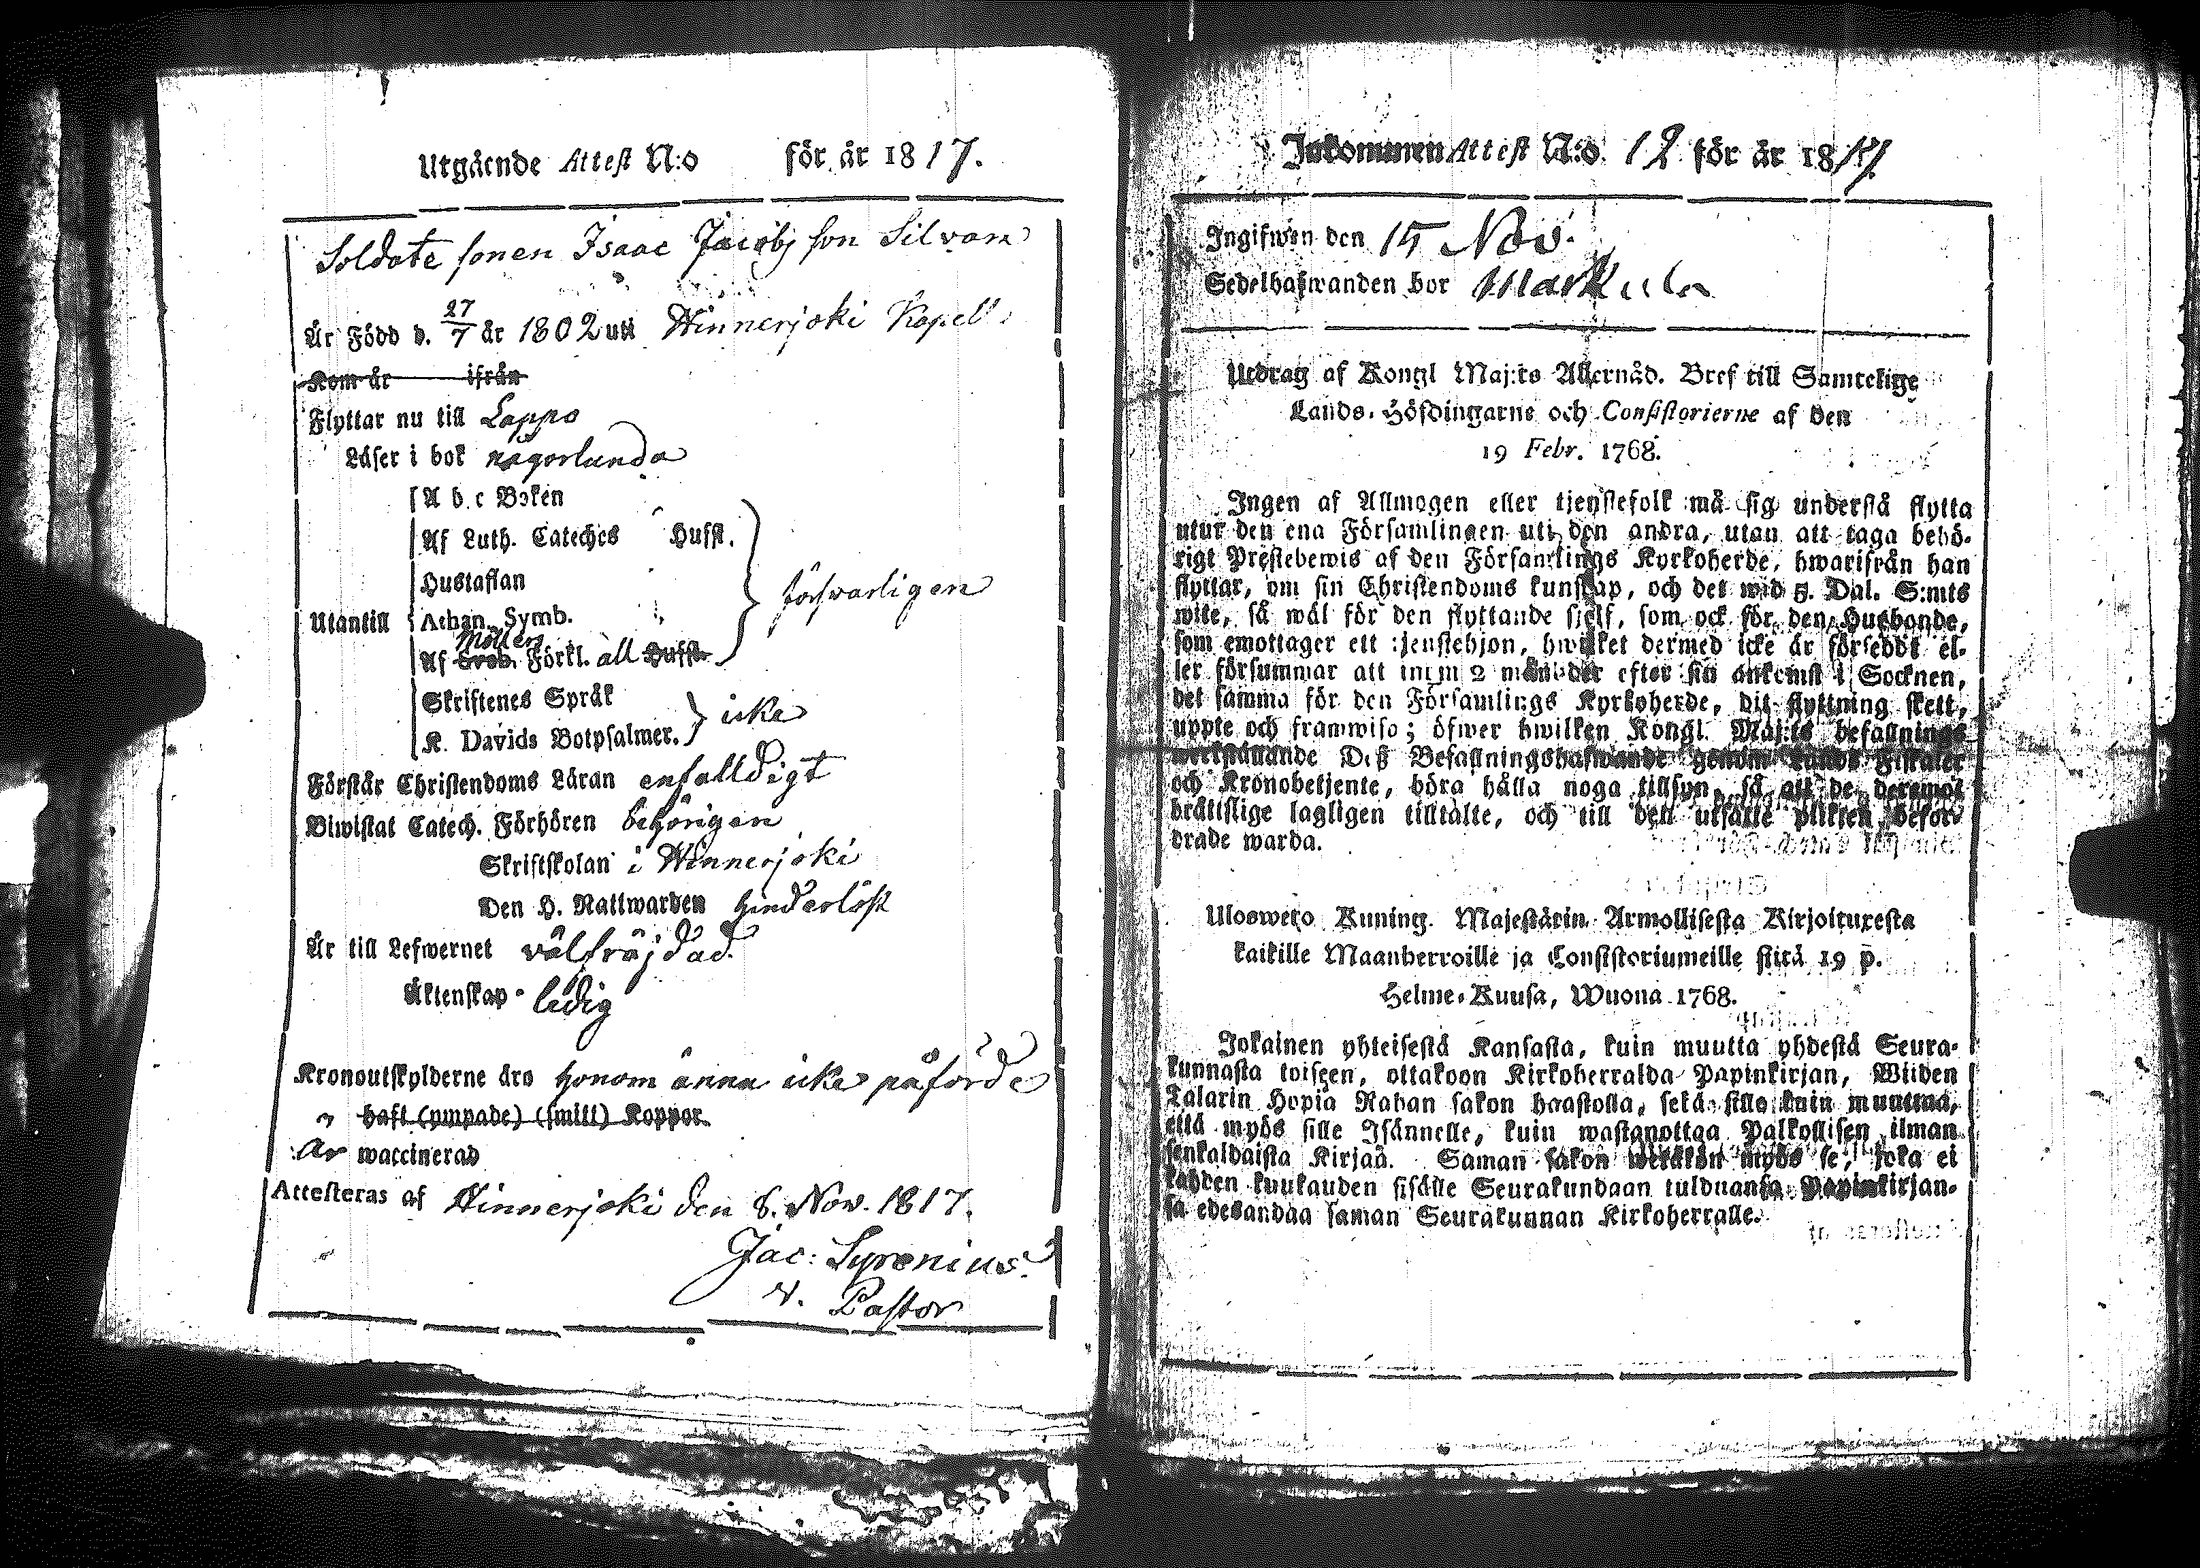 Utgående Attest N:o för år 1817.
Soldate sonen Isaac Jacobsson Silvan
Är Född d. 27/7 år 1802 uti Hinnerjoki Kapell
Kom år ifrån
Flyttar nu till Lappo
Läser i bok någorlunda
A b c Boken
Af Luth. Cateches Husfl.
Hustaflan
försvarligen
Utantill Athan. Symb.
Möllers
Af Sveb. Förkl. all Husfl.
Skriftenes Språk
icke
K. Davids Botpsalmer.
Förstår Christendoms Läran enfalldigt
Biwistat Catech. Förhören behörigen
Skriftskolan i Hinnerjoki
Den H. Nattwarden hinderlöst
Är till Lefwernet välfräjdad
Äktenskap ledig
Kronoutskylderne äro honom ännu icke påförde
haft (ympade) (smitt) Koppor.
Är waccinerad
Attesteras af Hinnerjoki den 8. Nov. 1817.
Jac: Syrenius
V. Pastor
Inkommen Attest N:o 12 för år 1817
Ingifwen den 15 Nov.
Sedelhafwanden bor Markula
Utdrag af Kongl Maj:ts Allernåd. Bref till Samtelige
Lands-Höfdingarne och Consistorierne af den
19 Febr. 1768.
Ingen af Allmogen eller tjenstefolk må sig understå flytta
utur den ena Församlingen uti den andra, utan att taga behö-
rigt Prestebewis af den Församlings Kyrkoherde, hwarifrån han
flyttar, om sin Christendoms kunskap, och det wid 5. Dal. S:mts
wite, så wäl för den flyttande sjelf, som ock för den Husbonde,
som emottager ett tjenstehjon, hwilket dermed icke är försedt el-
ler försummar att inom 2 månader efter sin ankomst i Socknen,
det samma för den Församlings Kyrkoherde, dit flyttning skett,
uppte och framwisa; öfwer hwilken Kongl. Maj:ts befallnings
werkställande Deß Befallningshafwande genom Lands Fiskaler
och Kronobetjente, böra hålla noga tillsyn, så att de deremot
brättslige lagligen tilltalte, och till den utsatte plikten befor-
drade warda.
Ulosweto Kuning. Majestätin Armollisesta Kirjoituxesta
kaikille Maanherroille ja Consistoriumeille siitä 19 p.
Helme-Kuusa, Wuona 1768.
Jokainen yhteisestä Kansasta, kuin muutta yhdestä Seura-
kunnasta toiseen, ottakoon Kirkoherralda Papinkirjan, Wiiden
Talarin Hopia Rahan sakon haastolla, sekä sille kuin muuttaa,
että myös sille Isännelle, kuin wastanottaa Palkollisen ilman
senkaldaista Kirjaa. Saman sakon wetäkön myös se, joka ei
kahden kuukauden sisälle Seurakundaan tulduansa Papinkirjan-
sa edesandaa saman Seurakunnan Kirkoherralle.